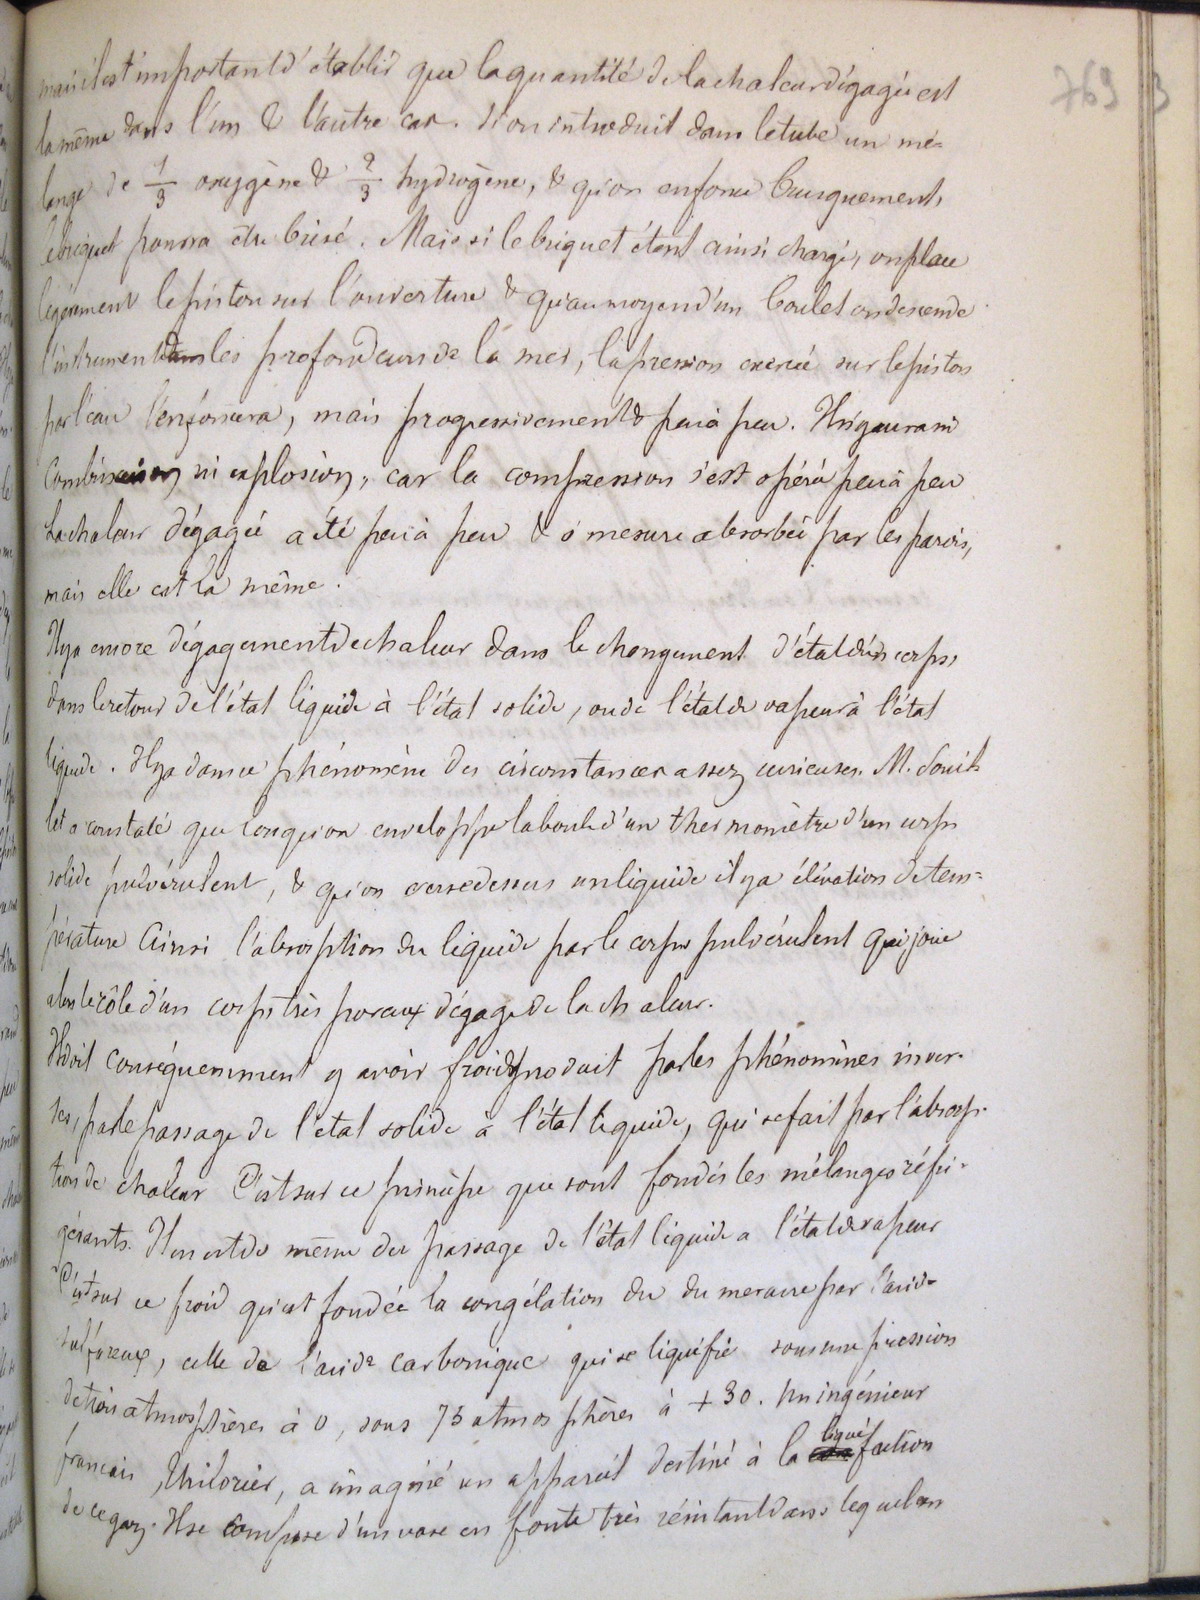 769 3
mais il est important d'établir que la quantité de la chaleur dégagée est
la même dans l'un & l'autre cas. Si on introduit dans le tube un mé=
lange de 1/3 oxygène & 2/3 hydrogène, & qu'on enfonce brusquement,
le briquet pourra être brisé. Mais si le briquet étant ainsi chargé, on place
légèrement le piston sur l'ouverture & qu'au moyen d'un boulet on descende
l'instrument dans les profondeurs de la mer, la pression exercée sur le piston
par l'eau l'enfoncera, mais progressivement & peu à peu. Il n'y aura ni
combinaison ni explosion, car la compression s'est opérée peu à peu
La chaleur dégagée a été peu à peu & à mesure absorbée par les parois,
mais elle est la même.
Il y a encore dégagement de chaleur dans le changement d'état des corps,
dans le retour de l'état liquide à l'état solide, ou de l'état de vapeur à l'état
liquide. Il y a dans ce phénomène des circonstances assez curieuses. M. Pouil
let a constaté que lorsqu'on enveloppe la boule d'un thermomètre d'un corps
solide pulvérulent, & qu'on verse dessus un liquide il y a élévation de tem=
pérature Ainsi l'absorption du liquide par le corps pulvérulent qui joue
alors le rôle d'un corps très poreux dégage de la chaleur.
Il doit conséquemment y avoir froid produit par les phénomènes inver-
ses, par le passage de l'état solide à l'état liquide, qui se fait par l'absorp-
tion de chaleur C'est sur ce principe que sont fondés les mélanges réfri-
gérants. Il en est de même du passage de l'état liquide a l'état de vapeur
C'est sur ce froid qu'est fondée la congélation du du mercure par l'acide
sulfureux, celle de l'acide carbonique qui se liquéfie sous une pression
de trois atmosphères à 0, sous 73 atmosphères à + 30. Un ingénieur
français, Thilorier, a imaginé un appareil destiné à la liquéfaction
de ce gaz. Il se compose d'un vase en fonte très résistant dans lequel on